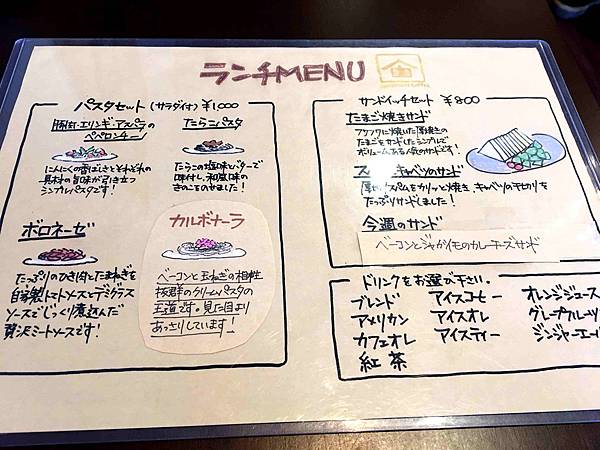 ランチMENU
パスタセット(サラダ付)¥1,000
豚肉・エリンギ・アスパラの
ペペロンチーノ
にんにくの香ばしさとそれぞれの
具材の旨味が引き立つ
シンプルパスタです!
たらこパスタ
たらこの塩味とバターで
味付し、和風味の
きのこのせました!
ボロネーゼ
たっぷりのひき肉とたまねぎを
自家製トマトソースとデミグラス
ソースでじっくり煮込んだ
贅沢ミートソースです!
カルボナーラ
ベーコンと玉ねぎの相性
抜群のクリームパスタの
王道です。見た目より
あっさりしています!
サンドイッチセット ¥800
たまご焼きサンド
フワフワに焼いた厚焼きの
たまごをサンドしたシンプルで
ボリュームある人気のサンドです!
キャベツのサンド
スパムをカリッと焼き キャベツの千切りを
たっぷりサンドしました!
今週のサンド
ベーコンとジャガイモのカレーチーズサンド
ドリンクをお選び下さい。
ブレンド アイスコーヒー オレンジジュース
アメリカン アイスオレ グレープフルーツ
カフェオレ アイスティー ジンジャーエール
紅茶